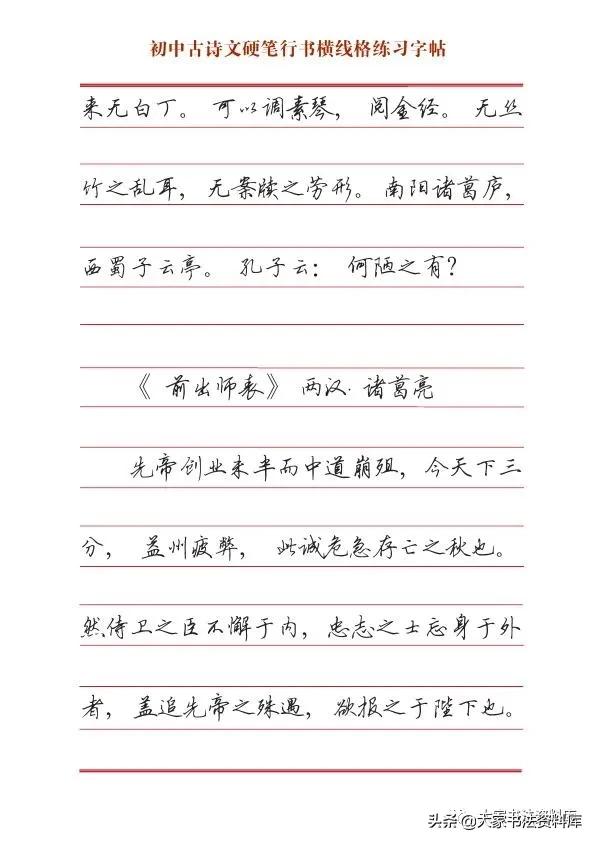 初中古诗文硬笔行书横线格练习字帖
来无白丁。 可以调素琴， 阅金经。 无丝
竹之乱耳， 无案牍之劳形。 南阳诸葛庐，
西蜀子云亭。 孔子云： 何陋之有？
《 前出师表》 两汉·诸葛亮
先帝创业未半而中道崩殂，今天下三
分， 益州疲弊， 此诚危急存亡之秋也。
然侍卫之臣不懈于内，忠志之士忘身于外
者， 盖追先帝之殊遇， 欲报之于陛下也。
头条@大家书法资料库